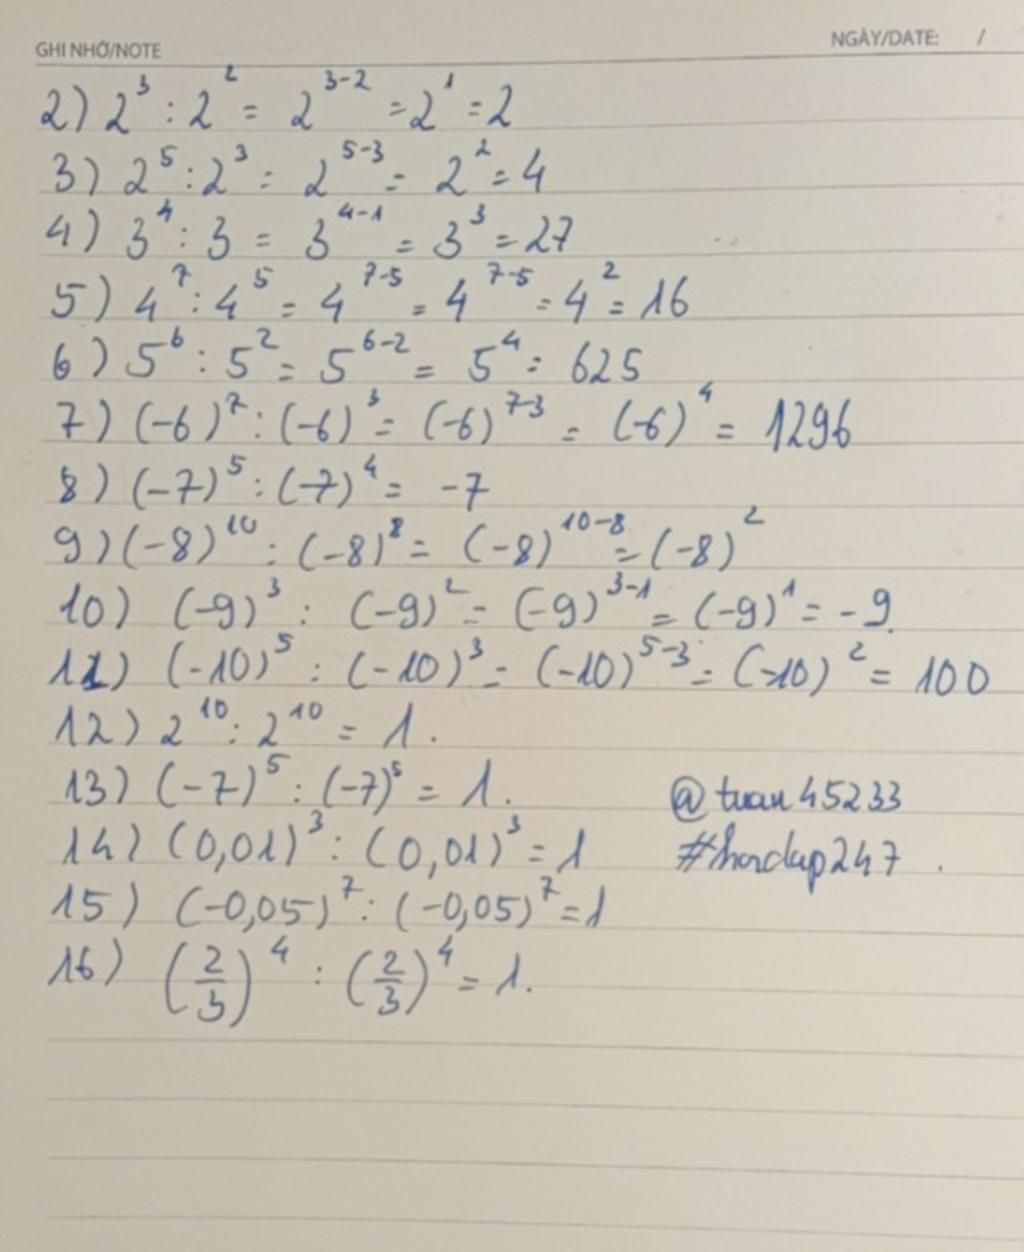 GHI NHỚ/NOTE NGÀY/DATE: /
2) 2³ : 2² = 2³⁻² = 2¹ = 2
3) 2⁵ : 2³ = 2⁵⁻³ = 2² = 4
4) 3⁴ : 3 = 3⁴⁻¹ = 3³ = 27
5) 4⁷ : 4⁵ = 4⁷⁻⁵ = 4⁷⁻⁵ = 4² = 16
6) 5⁶ : 5² = 5⁶⁻² = 5⁴ = 625
7) (-6)⁷ : (-6)³ = (-6)⁷⁻³ = (-6)⁴ = 1296
8) (-7)⁵ : (-7)⁴ = -7
9) (-8)¹⁰ : (-8)⁸ = (-8)¹⁰⁻⁸ = (-8)²
10) (-9)³ : (-9)² = (-9)³⁻¹ = (-9)¹ = -9
11) (-10)⁵ : (-10)³ = (-10)⁵⁻³ = (-10)² = 100
12) 2¹⁰ : 2¹⁰ = 1.
13) (-7)⁵ : (-7)⁵ = 1. @tuan45233
14) (0,01)³ : (0,01)³ = 1 #hoclap247.
15) (-0,05)⁷ : (-0,05)⁷ = 1
16) (2/3)⁴ : (2/3)⁴ = 1.